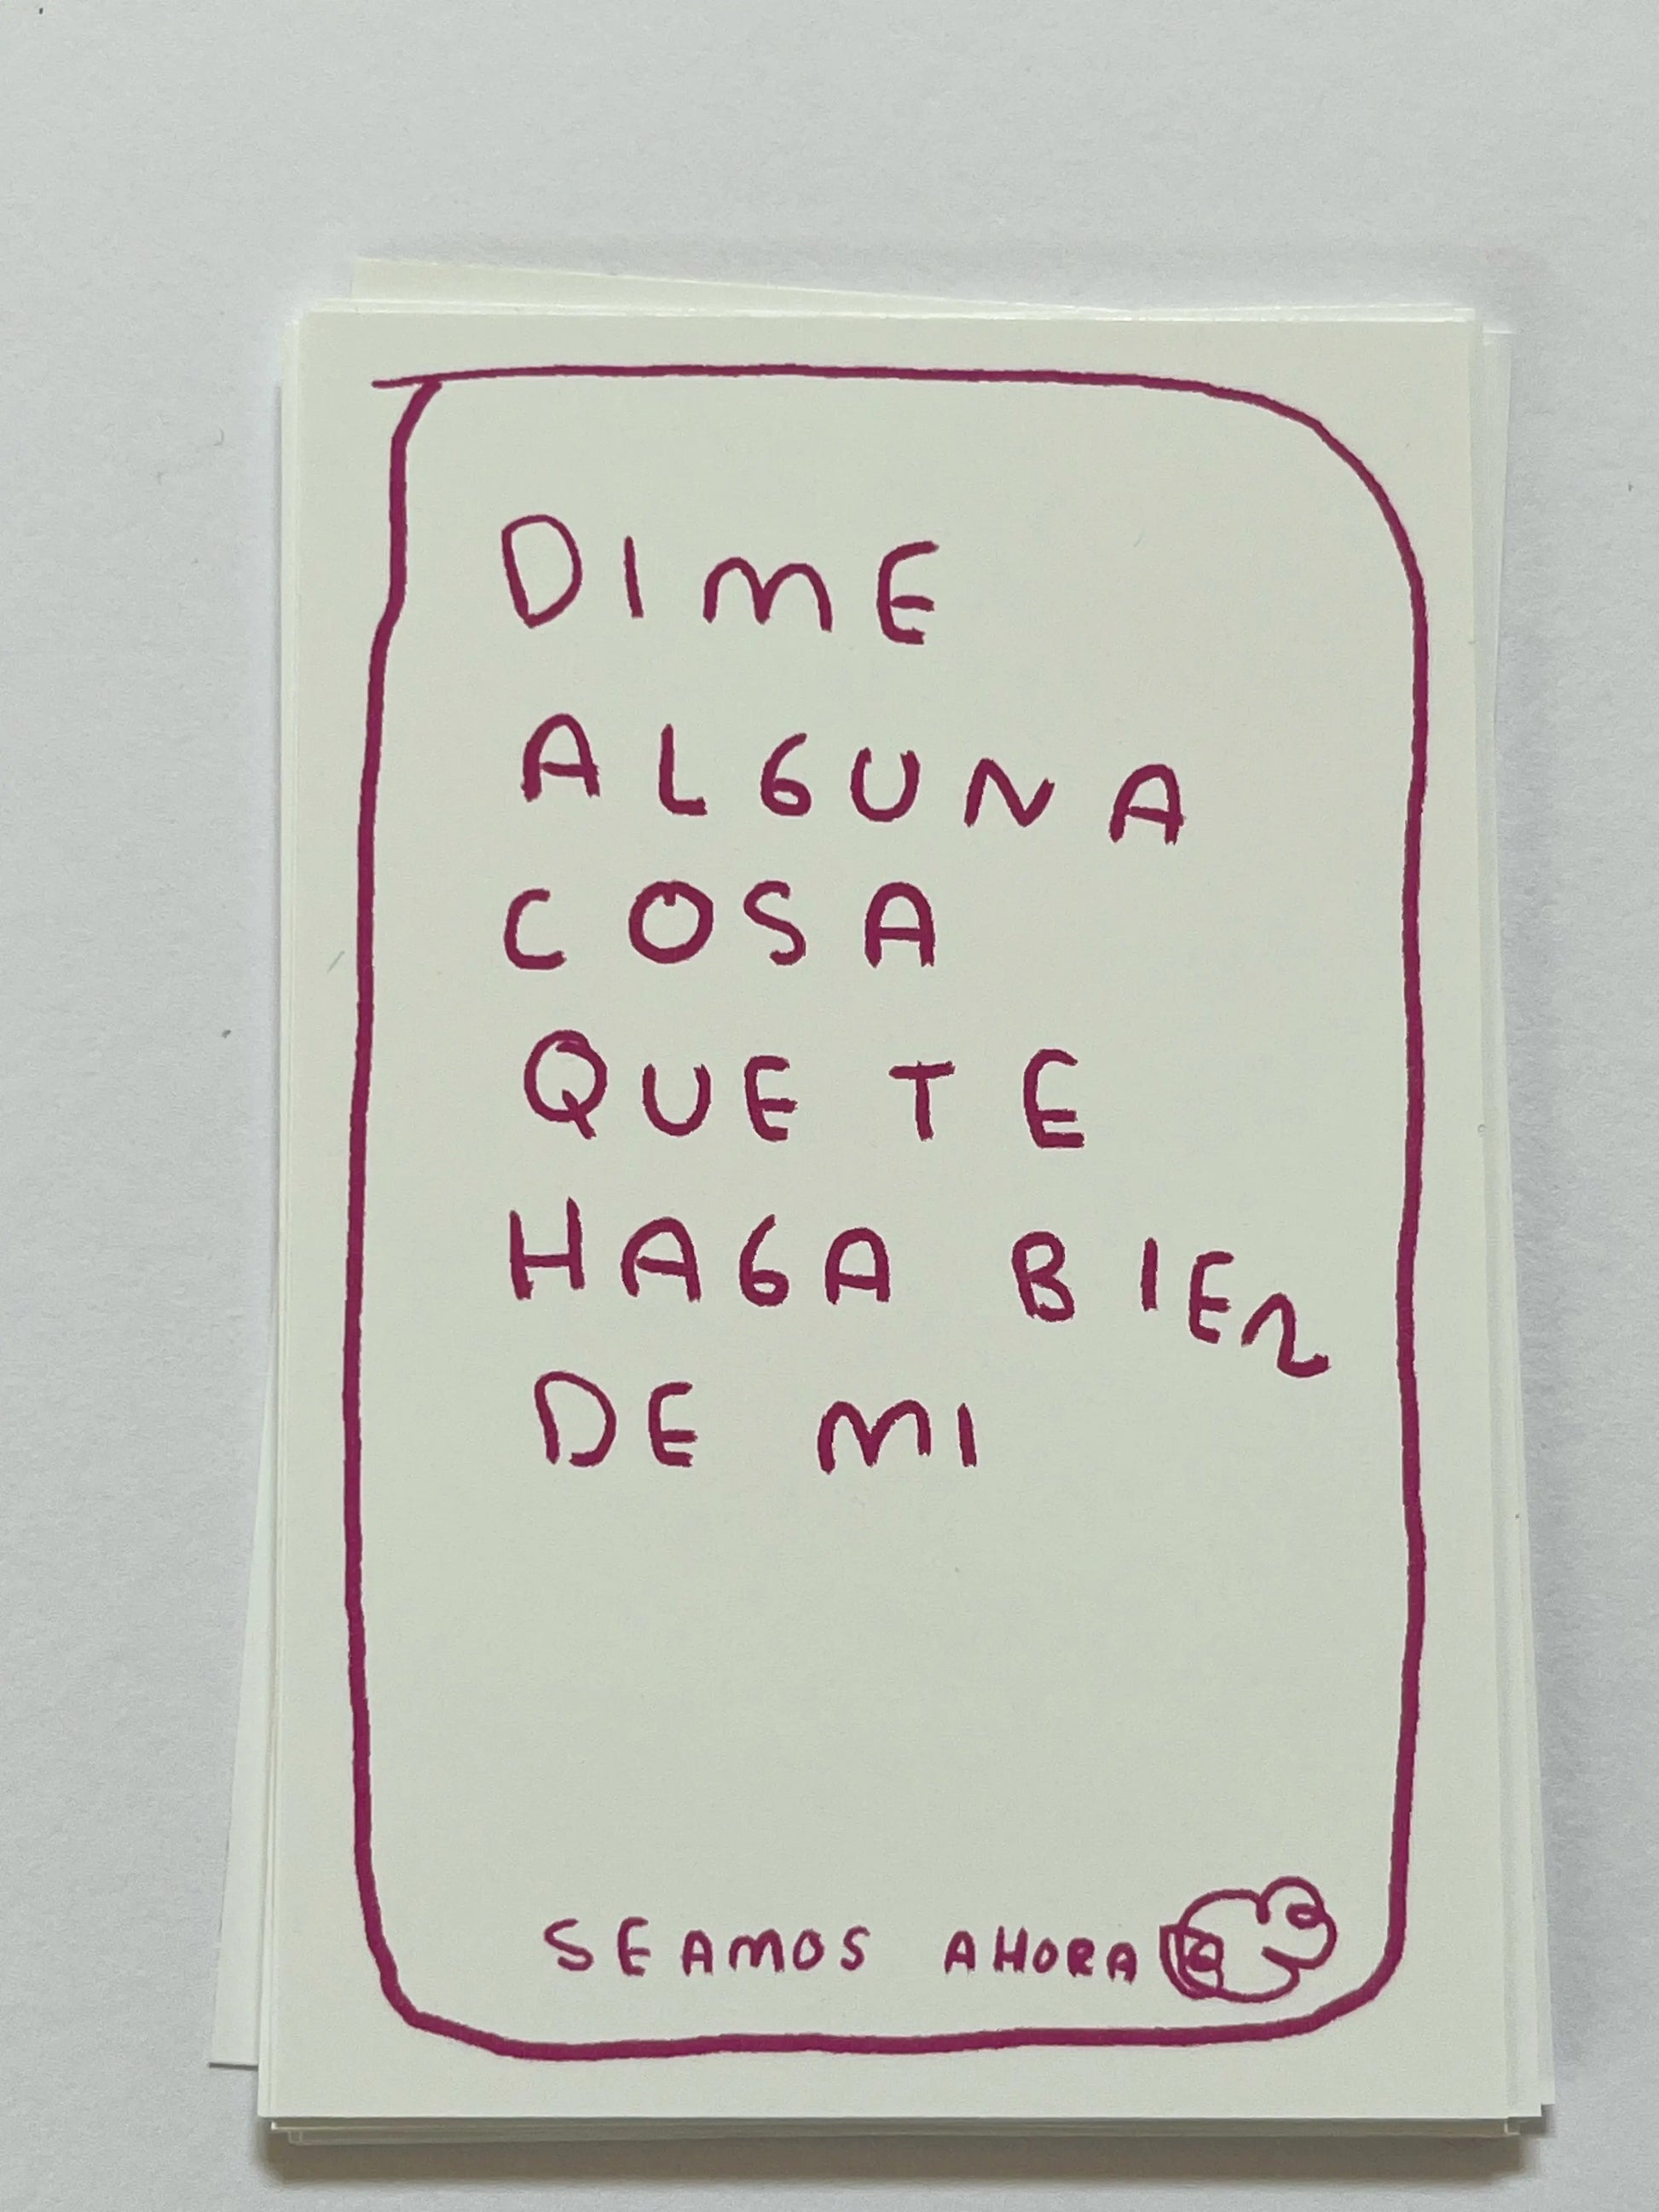 DIME
ALGUNA
COSA
QUE TE
HAGA BIEN
DE MI
SEAMOS AHORA